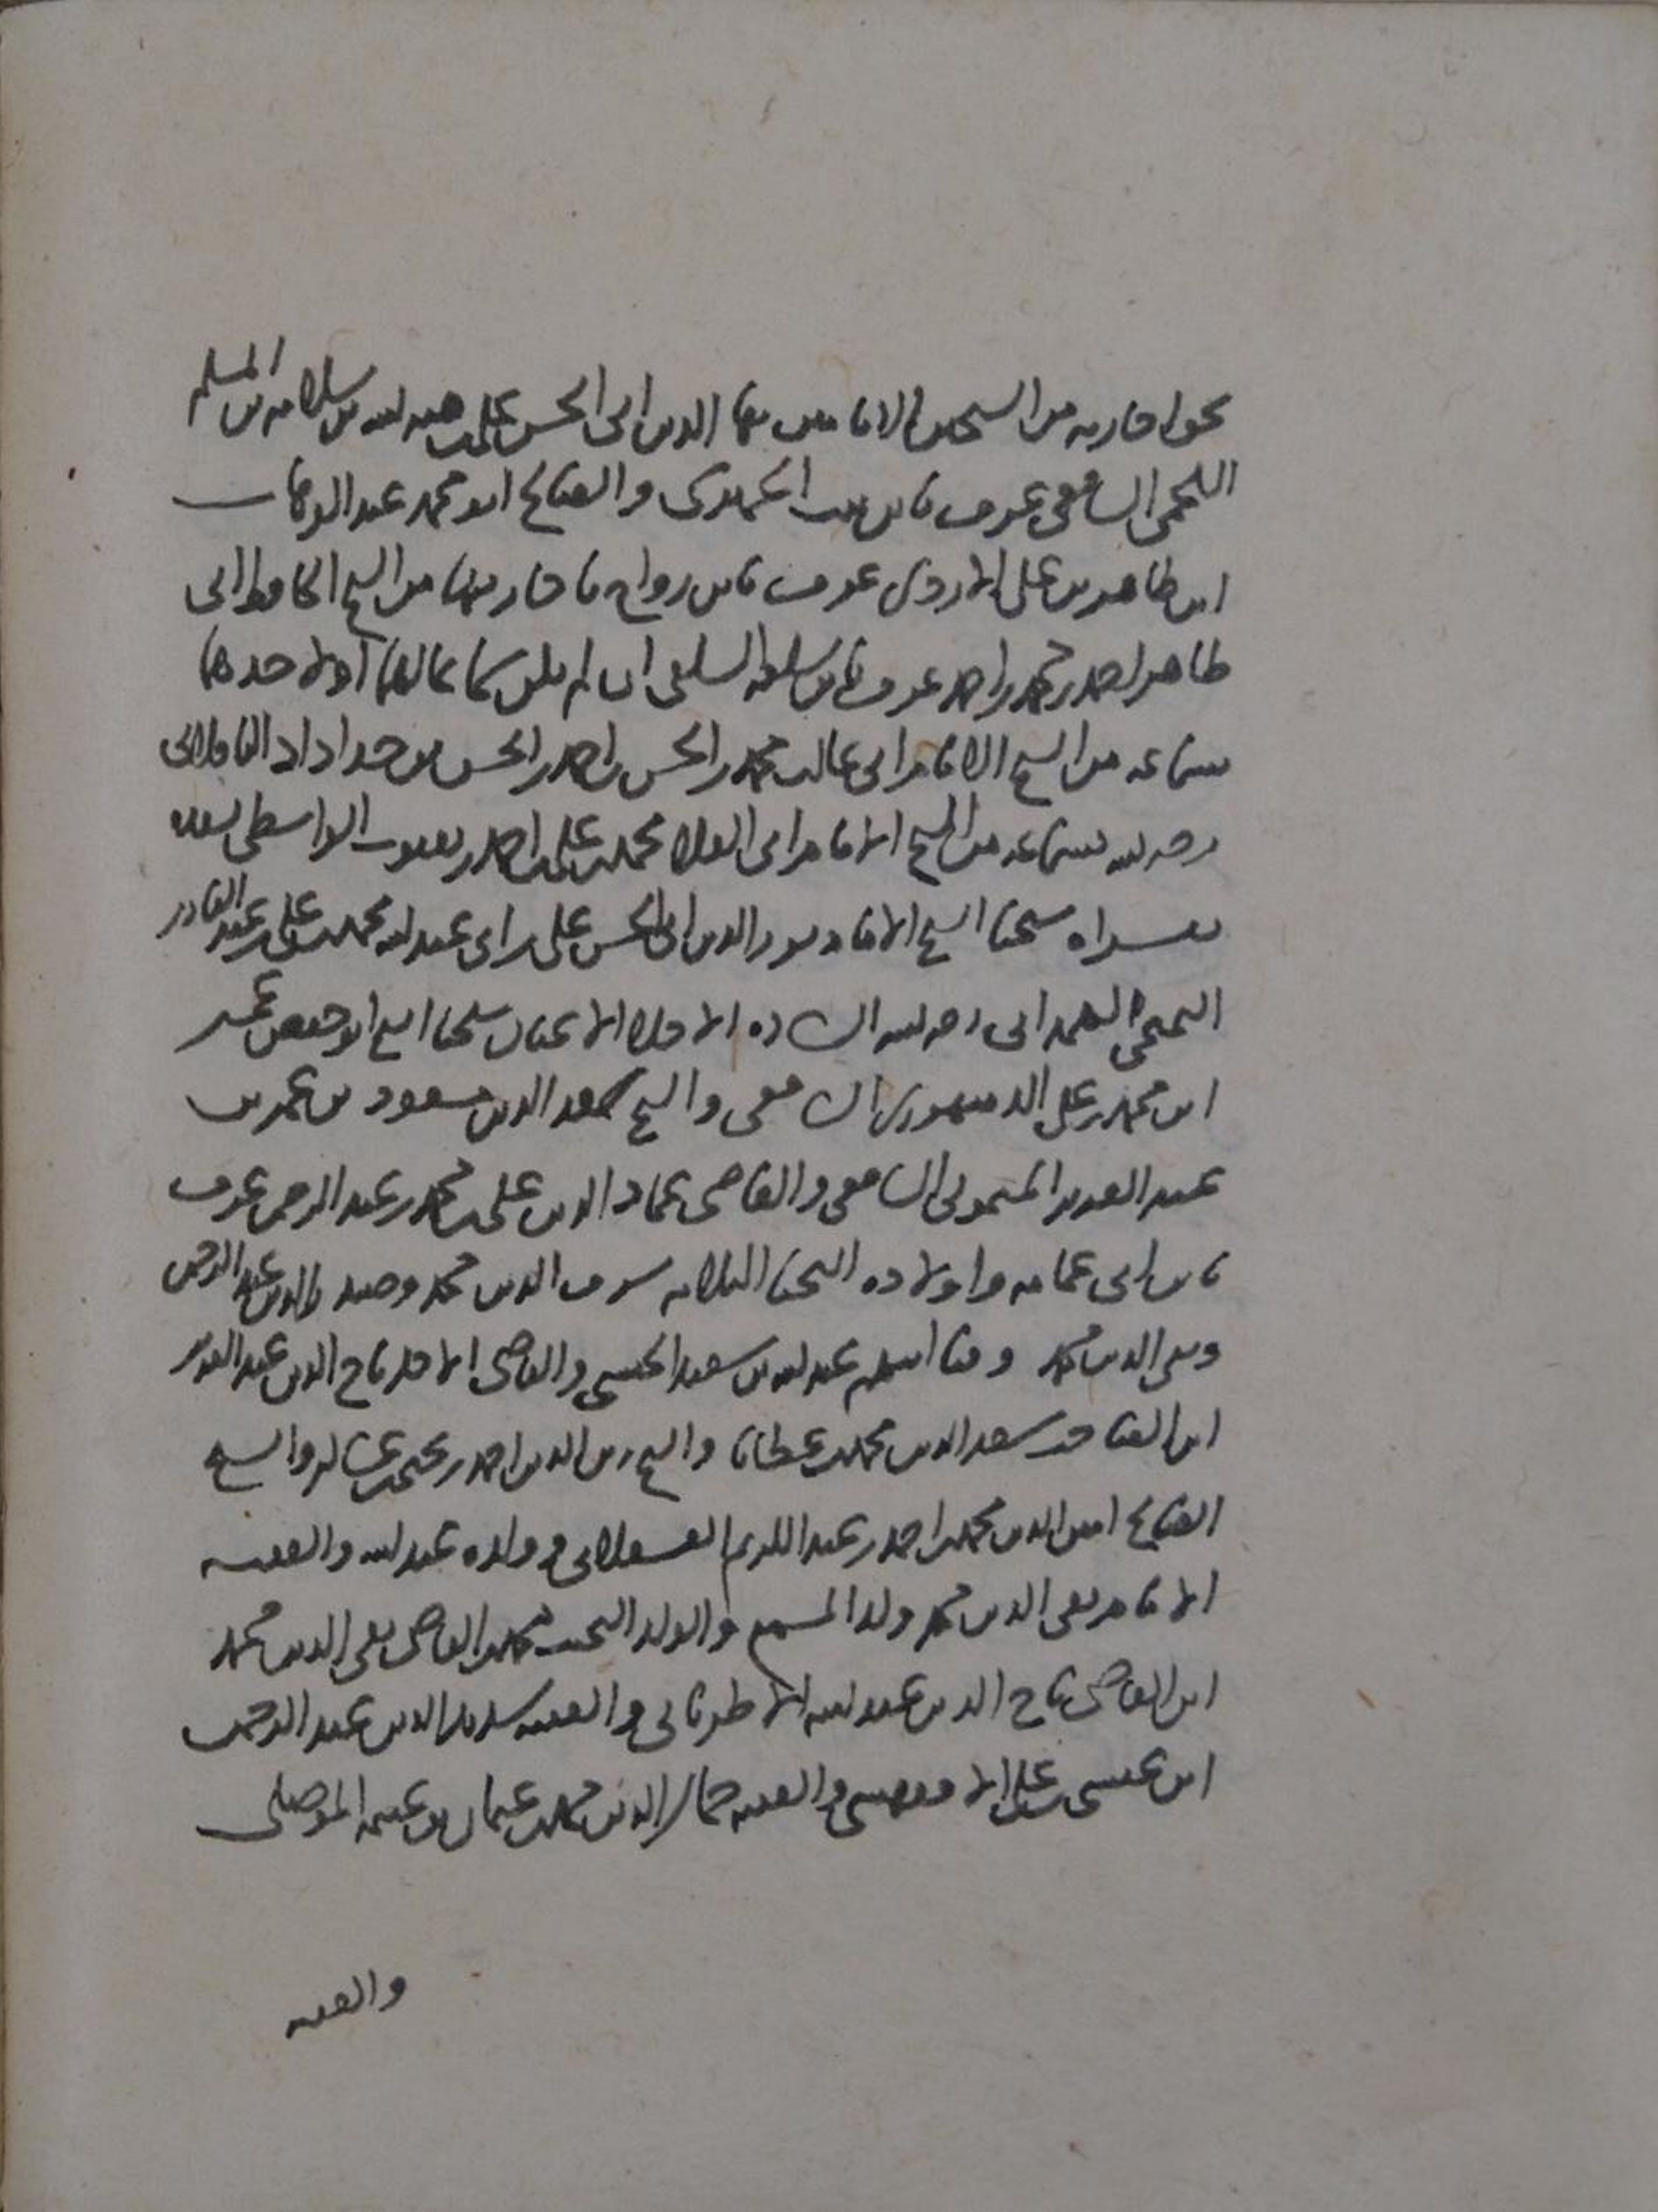 بحق اجازته من الشيخين الامامين بها الدين ابى الحسن على بن هبة الله بن سلامة بن المسلم
اللخمى الشافعى عرف بابن بنت الجميزى والصالح ابو محمد عبد الوهاب
ابن ظاهر بن على الازدى عرف بابن رواج باجازتهما من الشيخ الحافظ ابى
طاهر احمد بن محمد بن احمد عرف بابن سلفه السلفى ان لم يكن سماعا لهما او لاحدهما
بسماعه من الشيخ الامام ابى غالب محمد بن الحسن بن احمد بن الحسن بن حداداد الباقلانى
رحمه الله بسماعه من الشيخ الامام ابى العلا محمد بن على بن احمد بن يعقوب الواسطى بسنده
بقراه شيخنا الشيخ الامام نور الدين ابى الحسن على بن ابى عبد الله محمد بن على بن عبد القادر
التميمى الهمدانى رحمه الله الساده الاجلا الاعيان شيخنا الشيخ ابو حفص عمر
ابن محمد بن على الدمنهورى الشافعى والشيخ سعد الدين مسعود بن عمر بن
عبد العزيز الشافعى والقاضى عماد الدين على بن محمد بن عبد الرحمن عرف
بابن ابى عمامه واولاده النجبا الثلاثه شرف الدين محمد و الدين عبد الرحمن
وتقى الدين محمد وفتا اسلم عبد الله بن سعيد الحبشى والقاضى الاجل تاج الدين عبد العزيز
ابن سعد الدين محمد بن عطايا والشيخ زين الدين احمد بن يحيى بن عساكر والشيخ
الصالح امين الدين محمد بن احمد بن عبد الكريم العسقلانى وولده عبد الله والفقيه
الامام تقى الدين محمد ولد المسمع والولد النجيب محمد بن القاضى تقى الدين محمد
ابن القاضى تاج الدين عبد الله الاطربانى والفقيه سديد الدين عبد الرحمن
ابن عيسى بن على الاقفهسى والفقيه جمال الدين محمد بن عثمان بن عيسى الموصلى
والفقيه